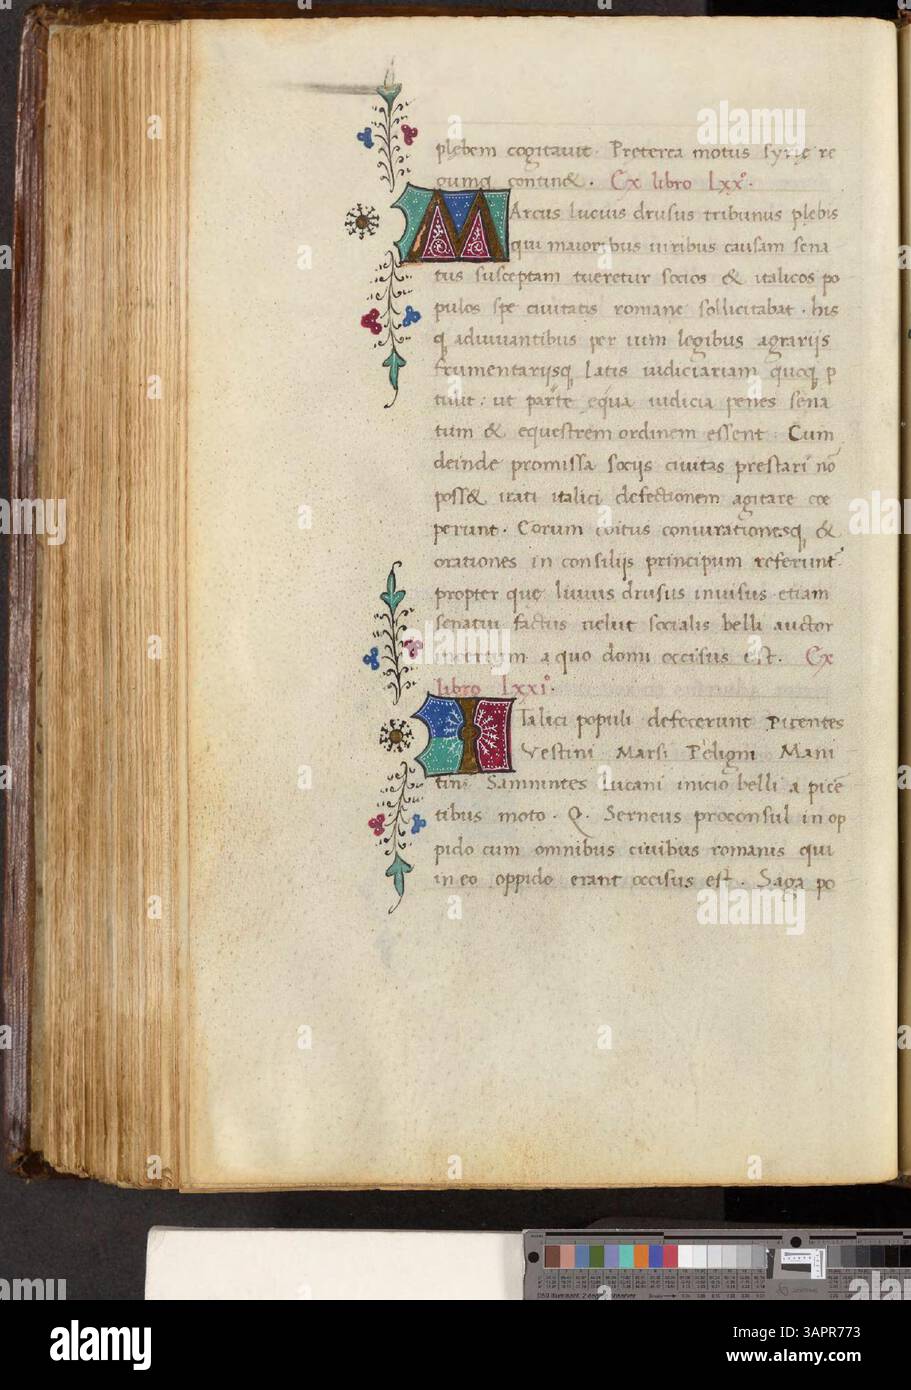 plebem cogitauit. Preterea motus syrię re
gumq contin&. Ex libro Lxxº.
MArcus liuius drusus tribunus plebis
qui maioribus uiribus causam sena
tus susceptam tueretur socios & italicos po
pulos spe ciuitatis romane sollicitabat. his
q adiuuantibus per uim legibus agrarijs
frumentarijsq latis iudiciariam quoq p
tulit: ut parte equa iudicia penes sena
tum & equestrem ordinem essent. Cum
deinde promissa socijs ciuitas prestari nō
poss& irati italici defectionem agitare coe
perunt. Eorum coitus coniurationesq &
orationes in consilijs principum referunt
propter que liuius drusus inuisus etiam
senatui factus uelut socialis belli auctor
incertum a quo domi occisus est. Ex
libro Lxxiº.
ITalici populi defecerunt Picentes
Vestini Marsi Peligni Mani
tini Samnintes Lucani inicio belli a picē
tibus moto. Q. Serueus proconsul in op
pido cum omnibus ciuibus romanis qui
in eo oppido erant occisus est. Saga po
alamy
Image ID: 3APR773
www.alamy.com